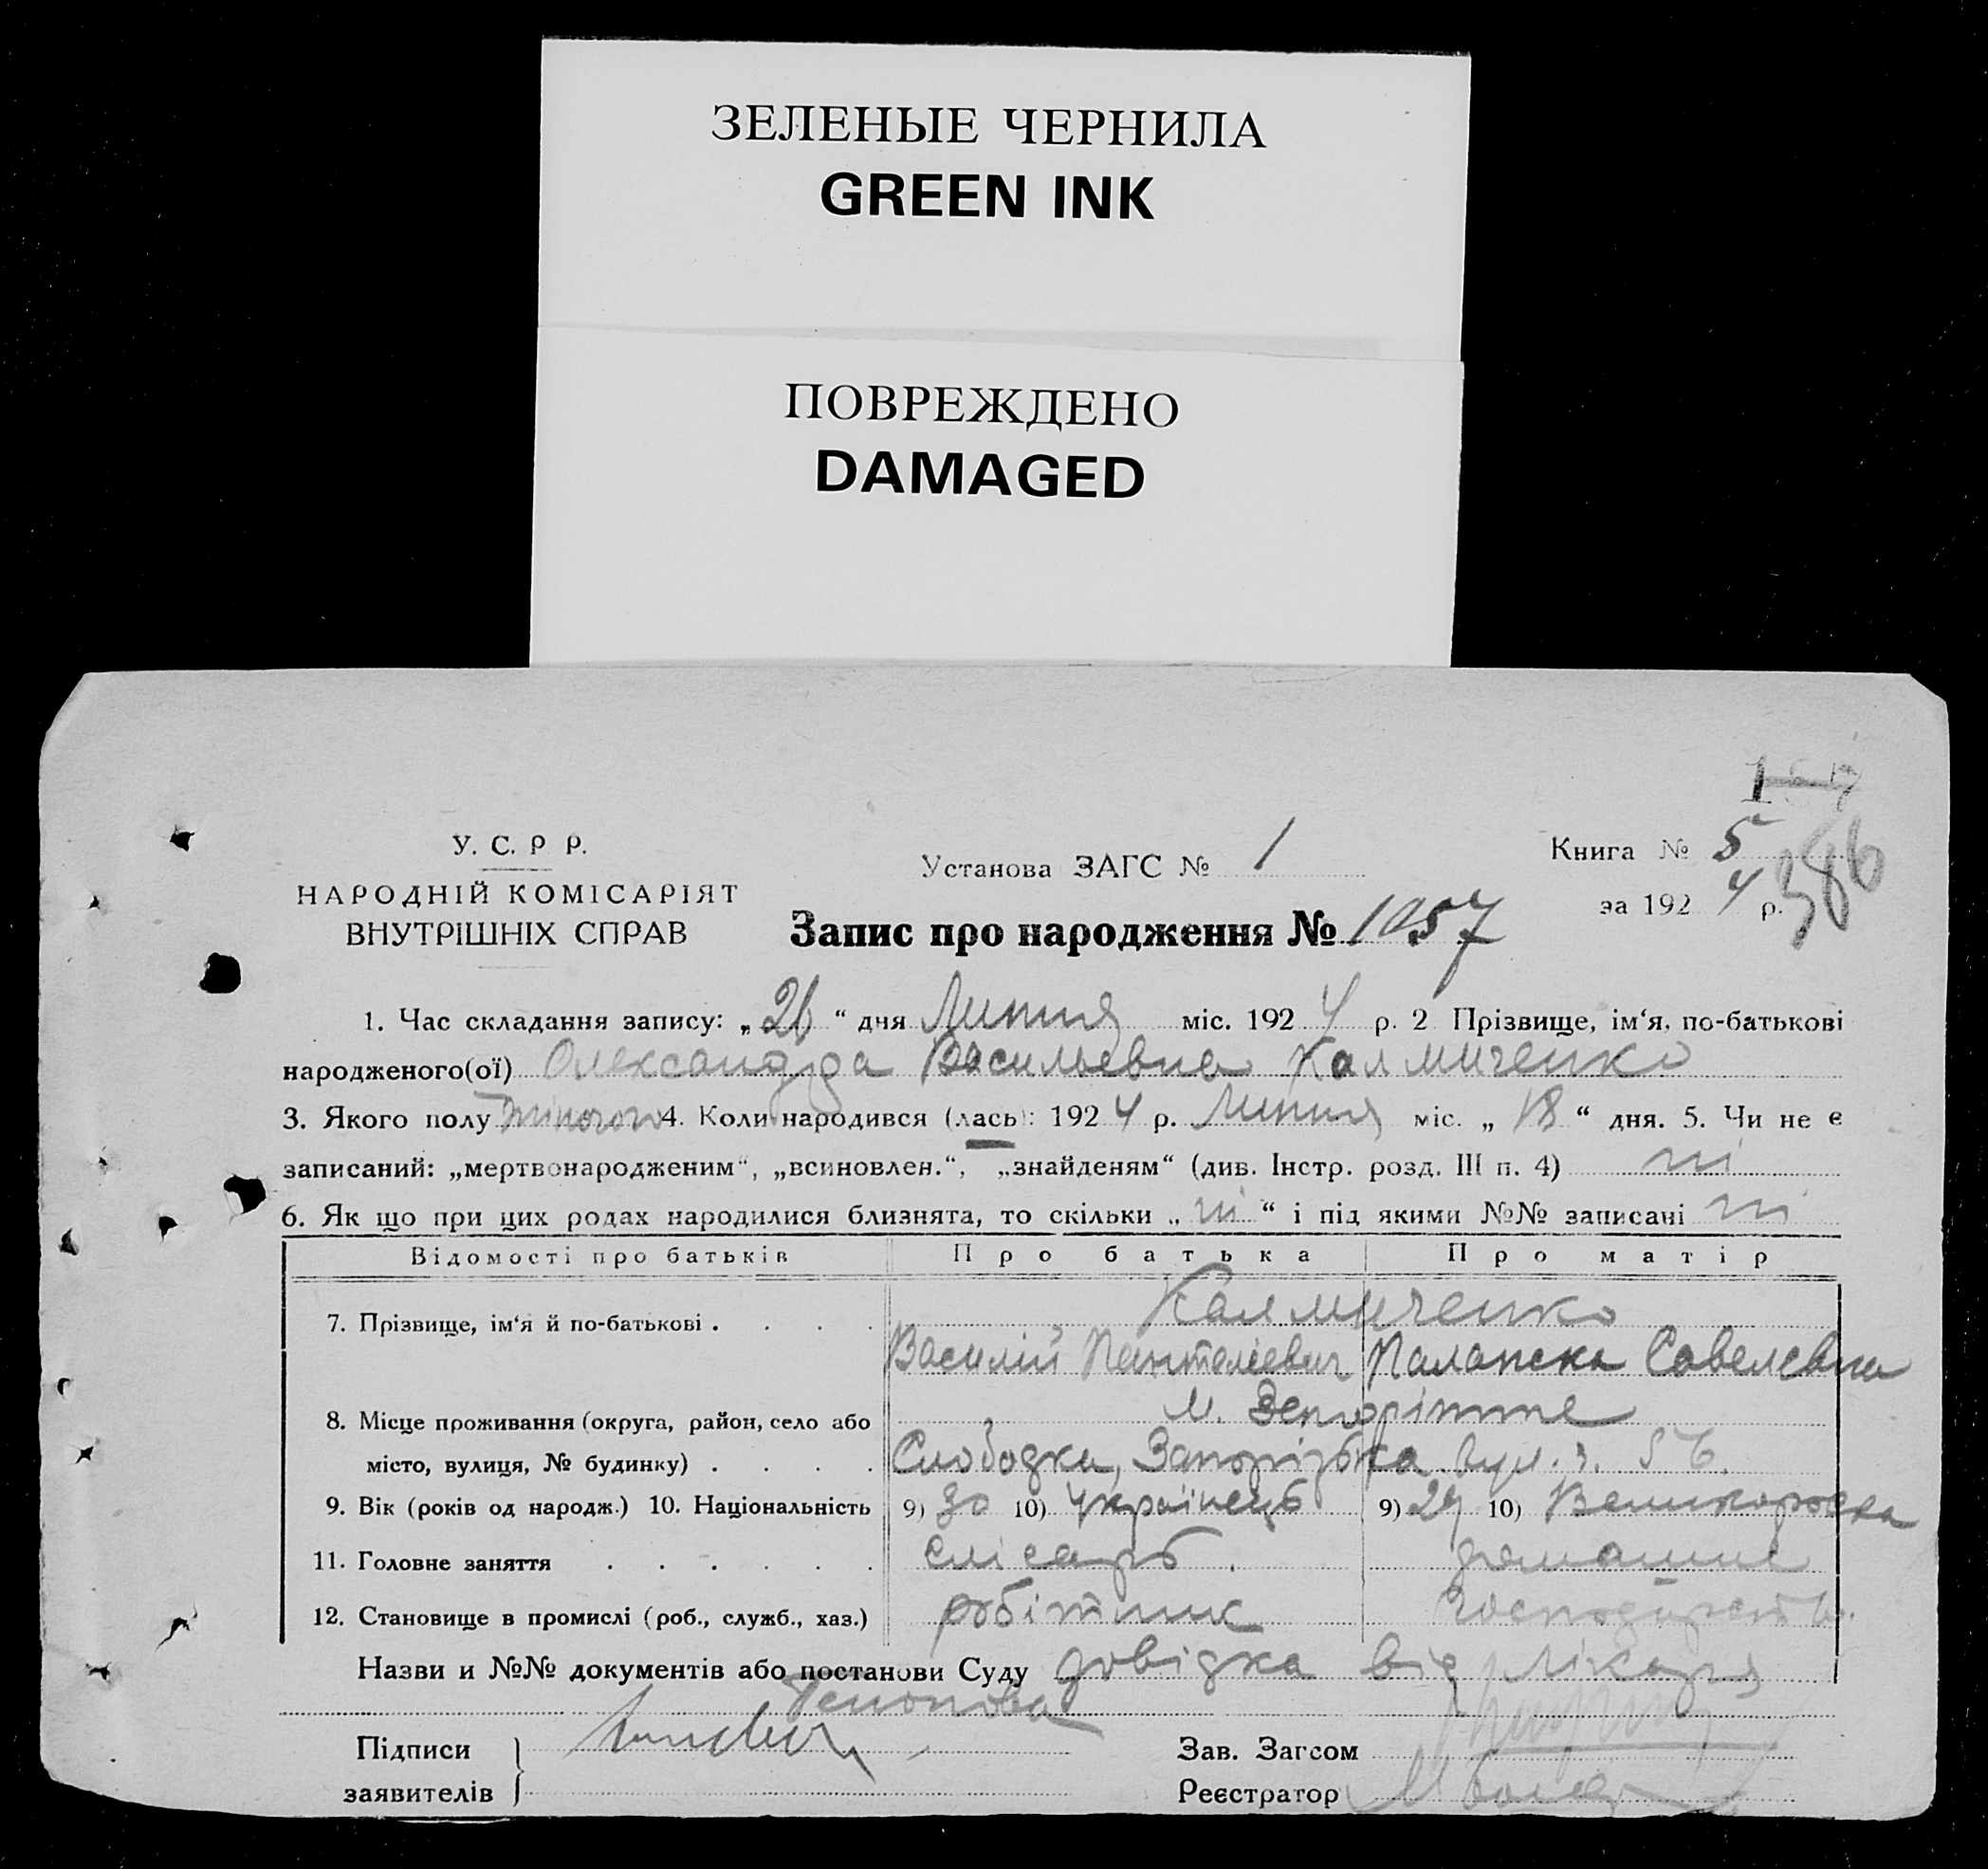 ЗЕЛЕНЫЕ ЧЕРНИЛА
GREEN INK
ПОВРЕЖДЕНО
DAMAGED
У. С. Р Р.
НАРОДНІЙ КОМІСАРІЯТ
ВНУТРІШНІХ СПРАВ
Установа ЗАГС № 1
Книга № 5
за 192 4 р.
386
Запис про народження № 1057
1. Час складання запису: „ 26 “ дня Липня міс. 192 4 р. 2 Прізвище, ім‘я, по-батькові
народженого(ої) Олександра Васильевна Калмиченко
3. Якого полу жіночого 4. Коли народився (лась): 192 4 р. Липня міс. „ 18 “ дня. 5. Чи не є
записаний: „мертвонародженим“, „всиновлен.“, „знайденям“ (див. Інстр. розд. III п. 4) ні
6. Як що при цих родах народилися близнята, то скільки „ ні “ і під якими №№ записані ні
Відомості про батьків Про батька Про матір
7. Прізвище, ім‘я й по-батькові . . . . Калмиченко
Василий Пантелієвич Палапска Савелевна
8. Місце проживання (округа, район, село або м. Запоріжже
місто, вулиця, № будинку) . . . . Слободка, Запорізька вул.
9. Вік (років од народж.) 10. Національність 9) 30 10) Українець 9) 29 10) Великороска
11. Головне заняття . . . . . . слісарь домашнє
12. Становище в промислі (роб., служб., хаз.) робітник господарств.
Назви и №№ документів або постанови Суду довідка від лікаря
Підписи
заявителів
Зав. Загсом
Реєстратор